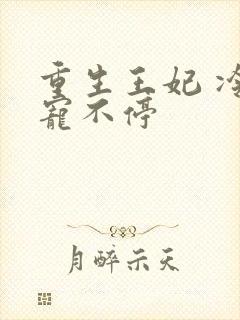 重生王妃 冷
寵不停
月醉示天